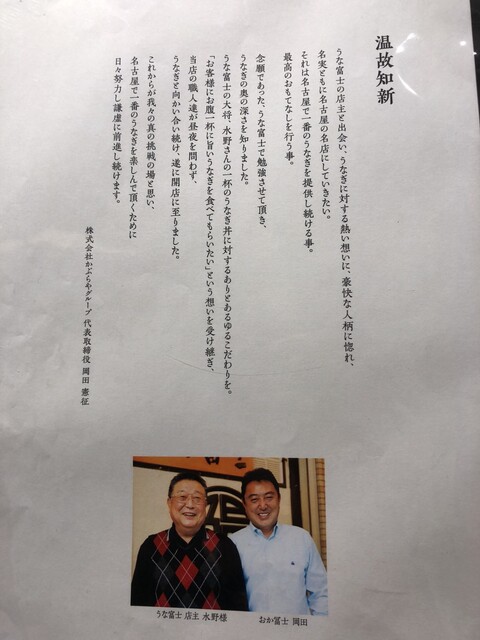 温故知新
うな富士の店主と出会い、うなぎに対する熱い想いに、豪快な人柄に惚れ、
名実ともに名古屋の名店にしていきたい。
それは名古屋で一番のうなぎを提供し続ける事。
最高のおもてなしを行う事。
念願であった、うな富士で勉強させて頂き、
うなぎの奥の深さを知りました。
うな富士の大将、水野さんの一杯のうなぎ丼に対するありとあるゆるこだわりを。
「お客様にお腹一杯に旨いうなぎを食べてもらいたい」という想いを受け継ぎ、
当店の職人達が昼夜を問わず、
うなぎと向かい合い続け、遂に開店に至りました。
これからが我々の真の挑戦の場と思い、
名古屋で一番のうなぎを楽しんで頂くために
日々努力し謙虚に前進し続けます。
株式会社かぶらやグループ 代表取締役 岡田 憲征
うな富士 店主 水野様
おか冨士 岡田